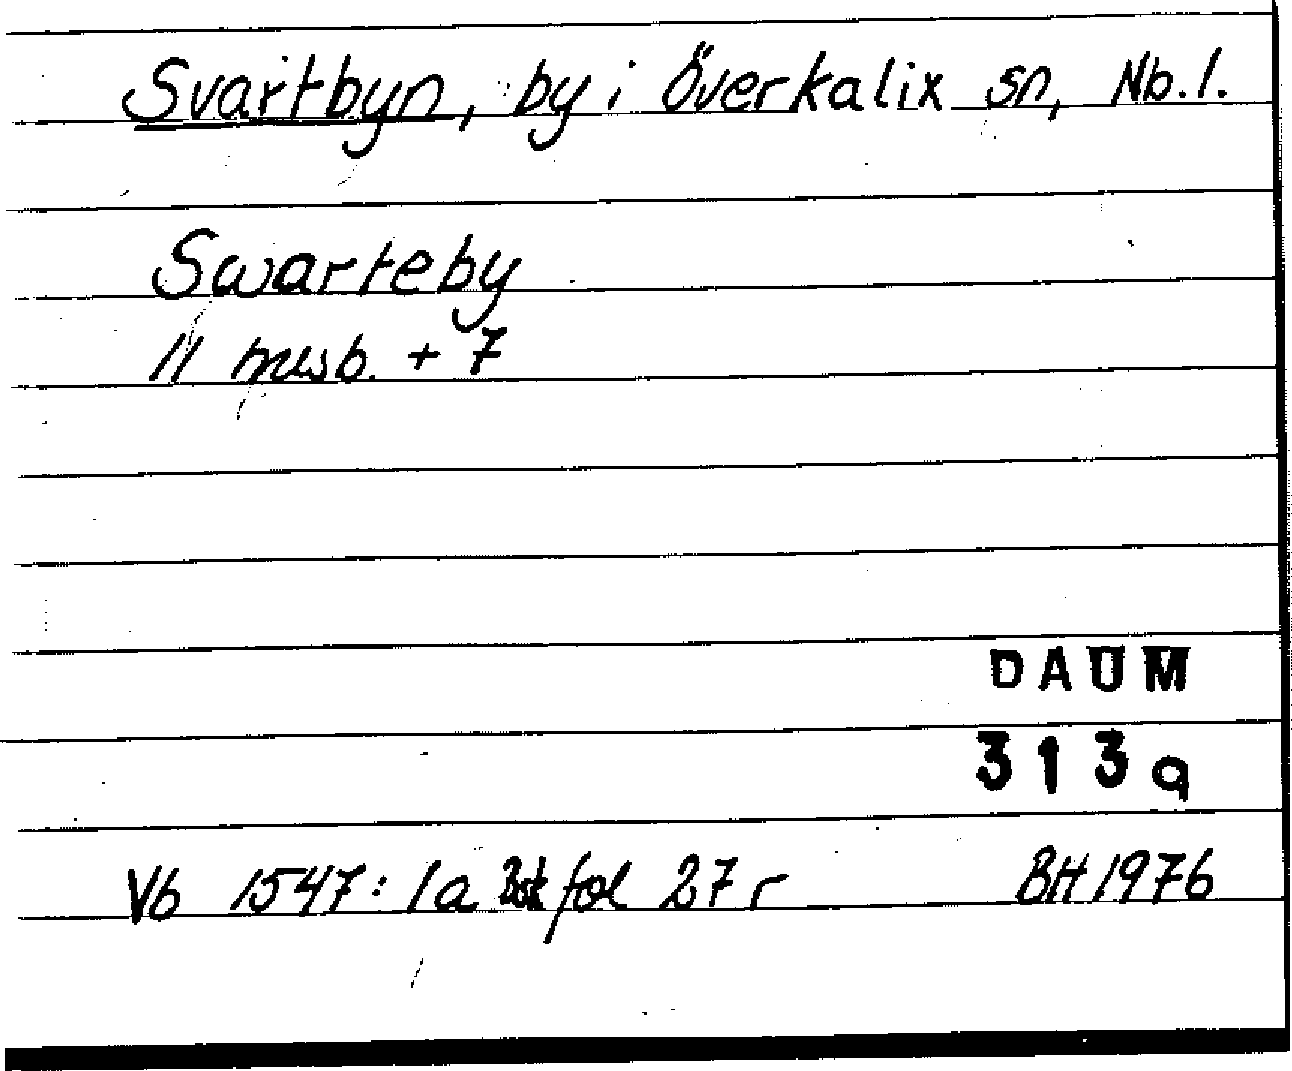 Svartbyn, by i Överkalix sn, Nb. l.
Swarteby
11 mesb. + 7
DAUM
313 q
Vb 1547: 1a Bsk fol 27 r
BH 1976